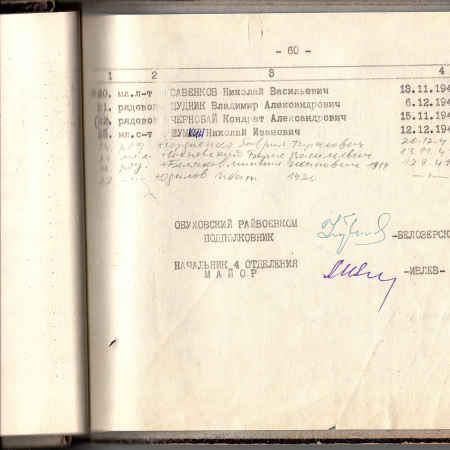 - 60 -
1 2 3 4
20. мл.л-т САВЕНКОВ Николай Васильевич 13.11.194
21. рядовой ЦУДНИК Владимир Александрович 6.12.194
22. рядовой ЧЕРНОБАЙ Кондрат Александрович 15.11.194
23. мл.с-т ШУМ Николай Иванович 12.12.194
24. ряд. Гаврил 20.12.4
25. Васильевич 13.11.4
26. ряд. Беляков Иванович 1914 12.8.4
27 1920 - " -
ОБУХОВСКИЙ РАЙВОЕНКОМ
ПОДПОЛКОВНИК -БЕЛОЗЕРСК
НАЧАЛЬНИК 4 ОТДЕЛЕНИЯ
МАЙОР -ИВЛЕВ-